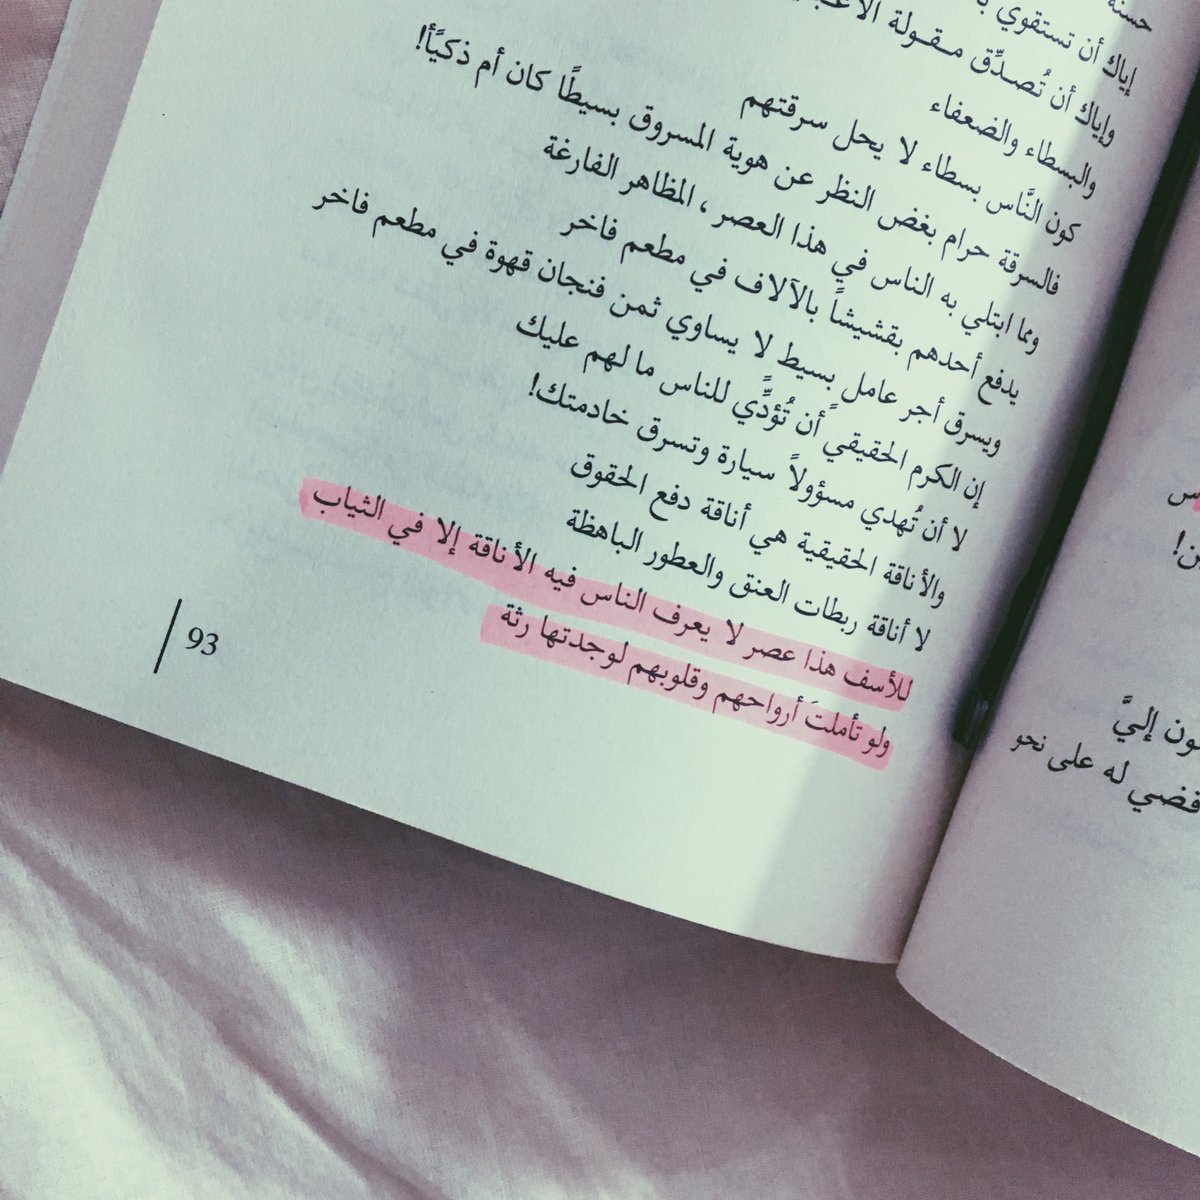 حسنة
إياك أن تستقوي
وإياك أن تُصدِّق مقولة
والبسطاء والضعفاء
كون النَّاس بسطاء لا يحل سرقتهم
فالسرقة حرام بغض النظر عن هوية المسروق بسيطًا كان أم ذكيًا!
ومما ابتلي به الناس في هذا العصر ، المظاهر الفارغة
يدفع أحدهم بقشيشاً بالآلاف في مطعم فاخر
ويسرق أجر عامل بسيط لا يساوي ثمن فنجان قهوة في مطعم فاخر
إن الكرم الحقيقي أن تُؤدِّي للناس ما لهم عليك
لا أن تُهدي مسؤولاً سيارة وتسرق خادمتك!
والأناقة الحقيقية هي أناقة دفع الحقوق
لا أناقة ربطات العنق والعطور الباهظة
للأسف هذا عصر لا يعرف الناس فيه الأناقة إلا في الثياب
ولو تأملتَ أرواحهم وقلوبهم لوجدتها رثة
93
إليَّ
له على نحو